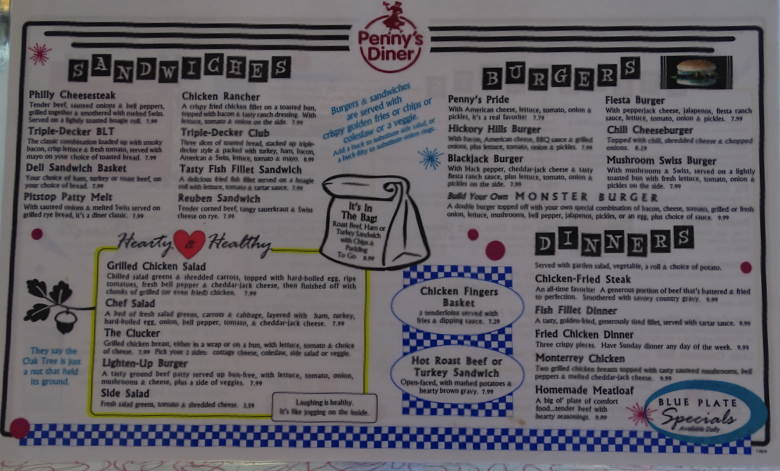 Penny's
Diner
SANDWICHES
Philly Cheesesteak
Tender beef, sauteed onions & bell peppers,
grilled together & smothered with melted Swiss.
Served on a lightly toasted hougie roll. 7.99
Triple-Decker BLT
The classic combination loaded up with smoky
bacon, crisp lettuce & fresh tomato, served with
mayo on your choice of toasted bread. 7.99
Deli Sandwich Basket
Your choice of ham, turkey or roast beef, on
your choice of bread. 7.99
Pitstop Patty Melt
With sauteed onions & melted Swiss served on
grilled rye bread, it's a diner classic. 7.99
Chicken Rancher
A crispy fried chicken fillet on a toasted bun,
topped with bacon & tasty ranch dressing. With
lettuce, tomato & onion on the side. 7.99
Triple-Decker Club
Three slices of toasted bread, stacked up triple-
decker style & packed with turkey, ham, bacon,
American & Swiss, lettuce, tomato & mayo. 8.99
Tasty Fish Fillet Sandwich
A delicious fried fish fillet served on a hougie
roll with lettuce, tomato & tartar sauce. 7.99
Reuben Sandwich
Tender corned beef, tangy sauerkraut & Swiss
cheese on rye. 7.99
Burgers & sandwiches
are served with
crispy golden fries or chips or
coleslaw or a veggie.
Add a buck to substitute side salad, or
a buck fifty to substitute onion rings.
It's In
The Bag!
Roast Beef, Ham or
Turkey Sandwich
with Chips &
Pudding
To Go 8.99
BURGERS
Penny's Pride
With American cheese, lettuce, tomato, onion &
pickles, it's a real favorite! 7.79
Hickory Hills Burger
With bacon, American cheese, BBQ sauce & grilled
onions, plus lettuce, tomato, onion & pickles. 7.99
Blackjack Burger
With black pepper, cheddar-jack cheese & tasty
fiesta ranch sauce, plus lettuce, tomato, onion &
pickles on the side. 7.99
Fiesta Burger
With pepperjack cheese, jalapenos, fiesta ranch
sauce, lettuce, tomato, onion & pickles. 7.99
Chili Cheeseburger
Topped with chili, shredded cheese & chopped
onions. 8.29
Mushroom Swiss Burger
With mushrooms & Swiss, served on a lightly
toasted bun with fresh lettuce, tomato, onion &
pickles on the side. 7.99
Build Your Own MONSTER BURGER
A double burger topped off with your own special combination of bacon, cheese, tomato, grilled or fresh
onion, lettuce, mushrooms, bell pepper, jalapenos, pickles, or an egg, plus choice of sauce. 9.99
Hearty & Healthy
Grilled Chicken Salad
Chilled salad greens & shredded carrots, topped with hard-boiled egg, ripe
tomatoes, fresh bell pepper & cheddar-jack cheese, then finished off with
chunks of grilled (or even fried) chicken. 7.99
Chef Salad
A bed of fresh salad greens, carrots & cabbage, layered with ham, turkey,
hard-boiled egg, onion, bell pepper, tomato, & cheddar-jack cheese. 7.99
The Clucker
Grilled chicken breast, either in a wrap or on a bun, with lettuce, tomato & choice
of cheese. 7.99 Pick your 2 sides: cottage cheese, coleslaw, side salad or veggie.
Lighten-Up Burger
A tasty ground beef patty served up bun-free, with lettuce, tomato, onion,
mushrooms & cheese, plus a side of veggies. 7.99
Side Salad
Fresh salad greens, tomato & shredded cheese. 3.59
They say the
Oak Tree is just
a nut that held
its ground.
Laughing is healthy.
It's like jogging on the inside.
Chicken Fingers
Basket
3 tenderloins served with
fries & dipping sauce. 7.29
Hot Roast Beef or
Turkey Sandwich
Open-faced, with mashed potatoes &
hearty brown gravy. 7.99
DINNERS
Served with garden salad, vegetable, a roll & choice of potato.
Chicken-Fried Steak
An all-time favorite! A generous portion of beef that's battered & fried
to perfection. Smothered with savory country gravy. 9.99
Fish Fillet Dinner
A tasty, golden-fried, generously sized fillet, served with tartar sauce. 9.99
Fried Chicken Dinner
Three crispy pieces. Have Sunday dinner any day of the week. 9.99
Monterrey Chicken
Two grilled chicken breasts topped with tasty sauteed mushrooms, bell
peppers & melted cheddar-jack cheese. 9.99
Homemade Meatloaf
A big ol' plate of comfort
food...tender beef with
hearty seasonings. 9.99
BLUE PLATE
Specials
Available Daily